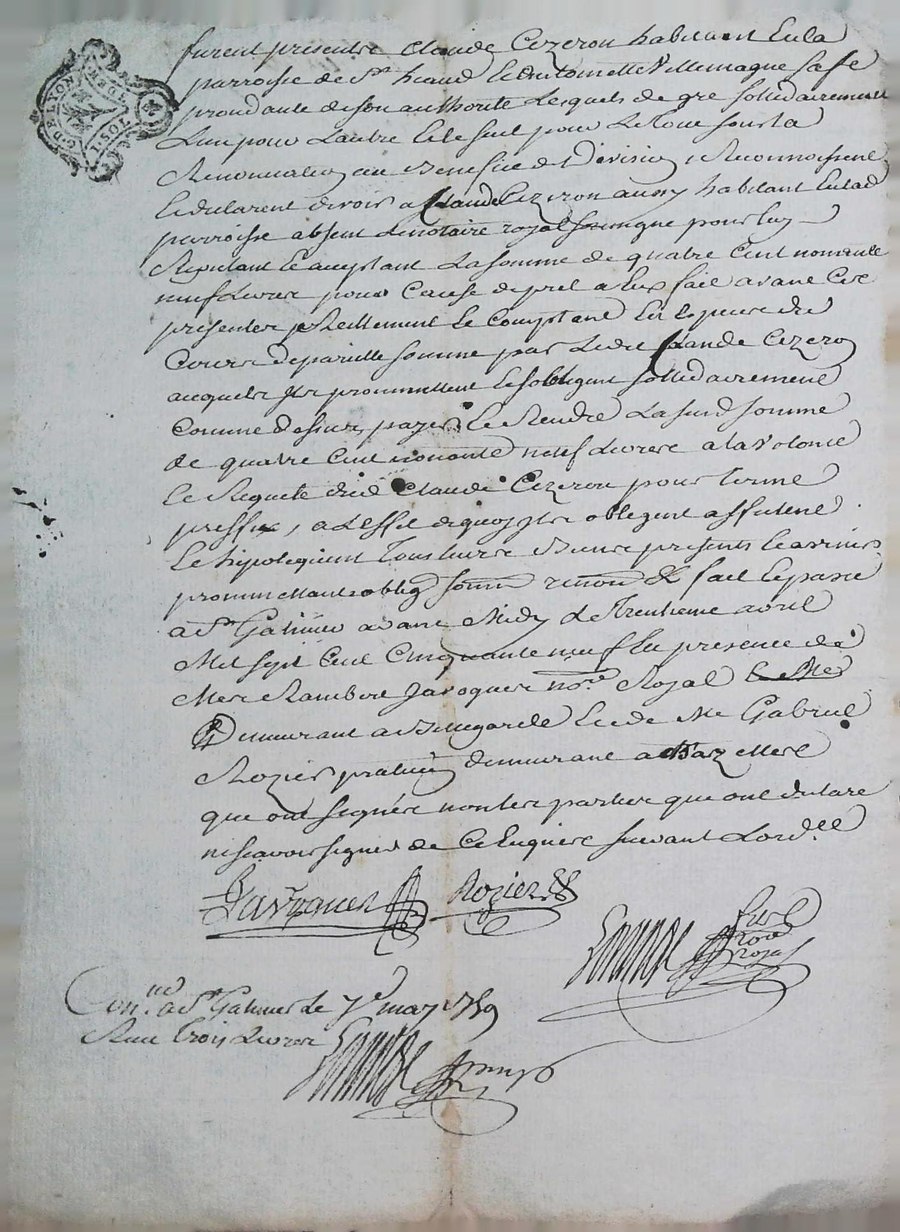 furent presentre Claude Cezeron habitant En la
parroisse de St heand Et Antoinette Villemagne Sa fe
proceddante de son authorite Lesquels de gre sollidairement
L'un pour L'autre Et le seul pour Le Tout sous la
Renonciation au Benefice de Division, Reconnoissent
Et declarent devoir a Claude Cezeron aussy habitant En lad
parroisse absent Le notaire royal soussigne pour luy
Stipulant Et acceptant La somme de quatre Cent nonante
neuf Livres pour Cause de prel a Eux fait avant Ces
presentes Reellement Et Comptant En Especes de
Cours de pareille somme par Ledit Claude Cezeron
auquel Ils promettent Et s'obligent sollidairement
Comme dessus payer Et Rendre La susd somme
de quatre Cent nonante neuf Livres a la volonte
Et Requete dud Claude Cezeron pour Terme
preffix, a L'effet de quoy Ils obligent affectent
Et hipotequent Tous leurs Biens presents Et avenir
promettant oblig soum renon & fait Et passe
a St Galmier avant Midy Le Trentieme avril
Mil sept Cent Cinquante neuf En presence de
Me Rambert Javoguer nore Royal
Demeurant a Bellegarde Et de Me Gabriel
Rozier praticien demeurant a Chazelles
que ont signere non les parties que ont declare
ne scavoir signer de Ce Enquiere suivant L'ordce
Javoguer Rozier
nore
royal
Conlle a St Galmier le 7e may 1759
Recu Trois Livres
GD. DE LYON